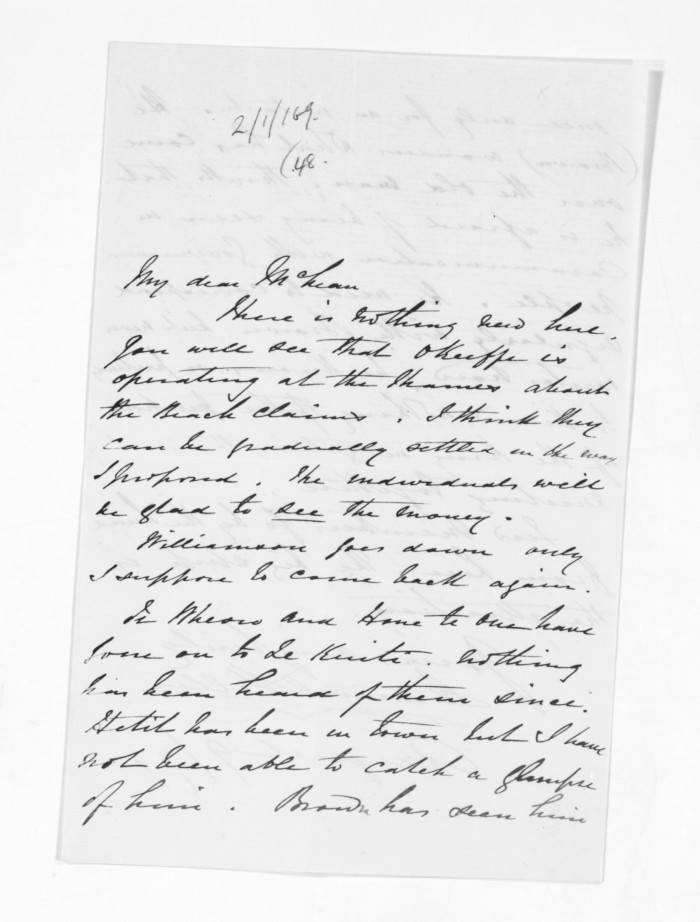 2/1/169.
(48.
My dear McLean
There is nothing new here.
You will see that OKeiffe is
operating at the Thames about
the Beach Claims. I think they
can be gradually settled in the way
I proposed. The individuals will
be glad to see the money.
Williamson goes down only
I suppose to come back again.
Te Wheoro and Hone te One have
gone on to Te Kuiti. Nothing
has been heard of them since.
Hetit has been in town but I have
not been able to catch a glimpse
of him. Brown has seen him